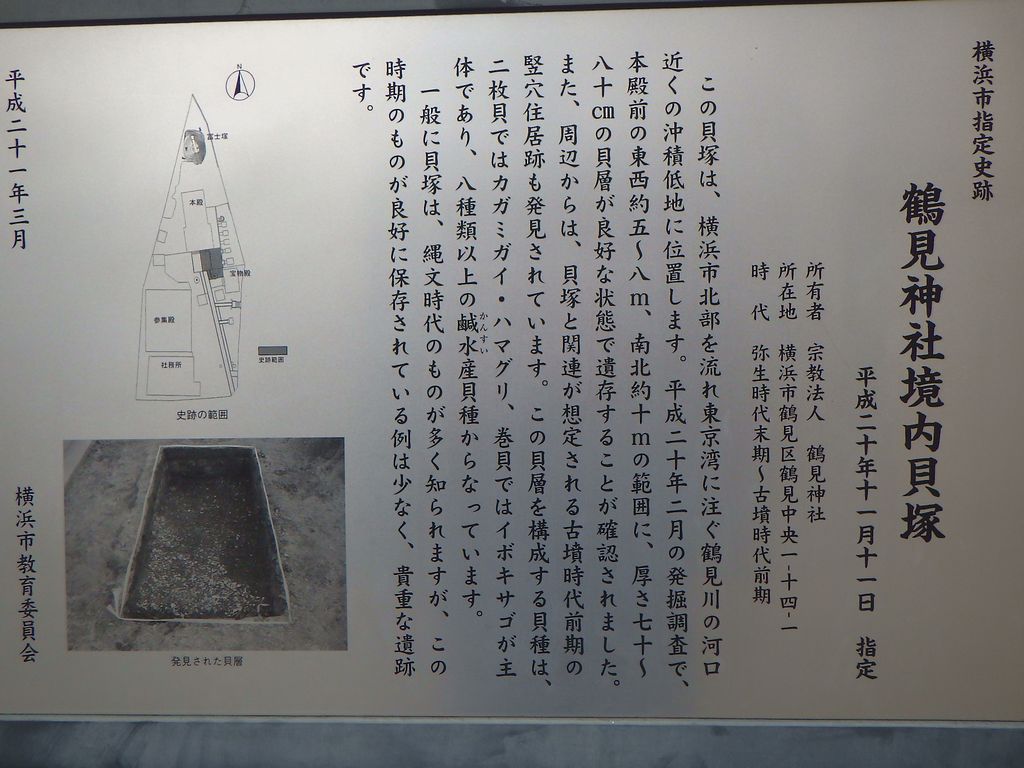 横浜市指定史跡
鶴見神社境内貝塚
平成二十年十一月十一日 指定
所有者 宗教法人 鶴見神社
所在地 横浜市鶴見区鶴見中央一-十四-一
時 代 弥生時代末期～古墳時代前期
この貝塚は、横浜市北部を流れ東京湾に注ぐ鶴見川の河口
近くの沖積低地に位置します。平成二十年二月の発掘調査で、
本殿前の東西約五～八m、南北約十mの範囲に、厚さ七十～
八十cmの貝層が良好な状態で遺存することが確認されました。
また、周辺からは、貝塚と関連が想定される古墳時代前期の
竪穴住居跡も発見されています。この貝層を構成する貝種は、
二枚貝ではカガミガイ・ハマグリ、巻貝ではイボキサゴが主
体であり、八種類以上の鹹水産貝種からなっています。
かんすい
一般に貝塚は、縄文時代のものが多く知られますが、この
時期のものが良好に保存されている例は少なく、貴重な遺跡
です。
N
富士塚
本殿
宝物殿
参集殿
社務所
史跡範囲
史跡の範囲
発見された貝層
平成二十一年三月
横浜市教育委員会